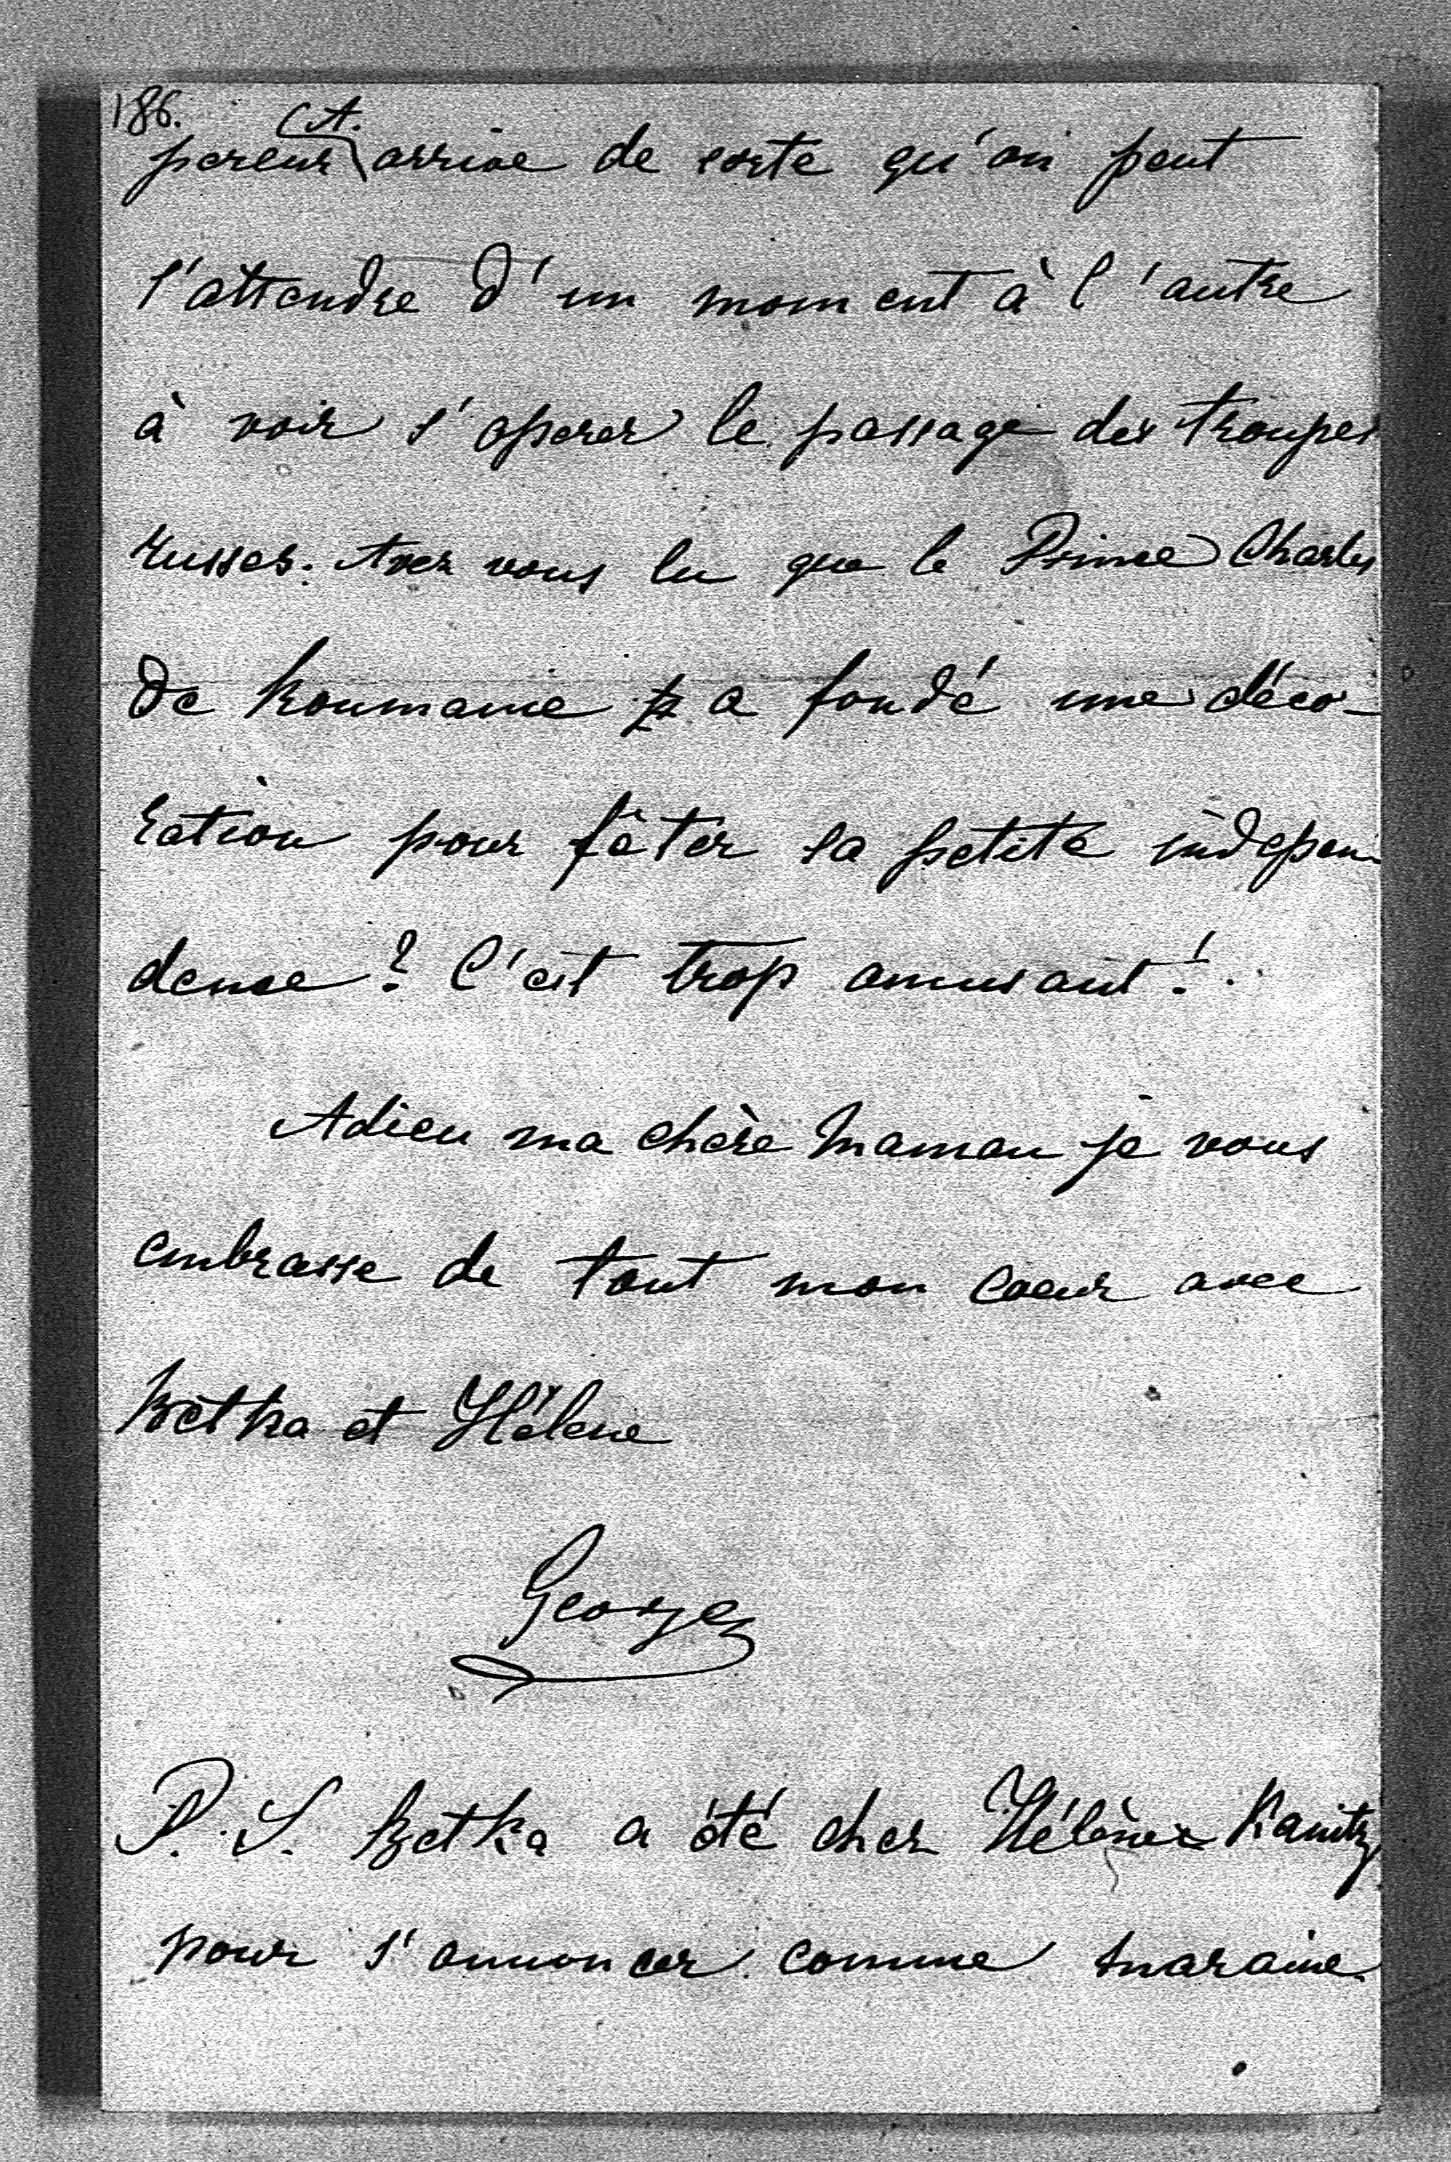 186.
A.
pereur arrive de sorte qu'on peut
s'attendre d'un moment à l'autre
à voir s'operer le passage des troupes
russes. Avez vous lu que le Prince Charles
de Roumanie a fondé une déco-
ration pour fêter sa petite indepen-
dense? C'est trop amusant!
Adieu ma chère Maman je vous
embrasse de tout mon coeur avec
Betka et Hélène
George
P.S. Betka a été chez Hélène Kanitz
pour s'annoncer comme maraine.